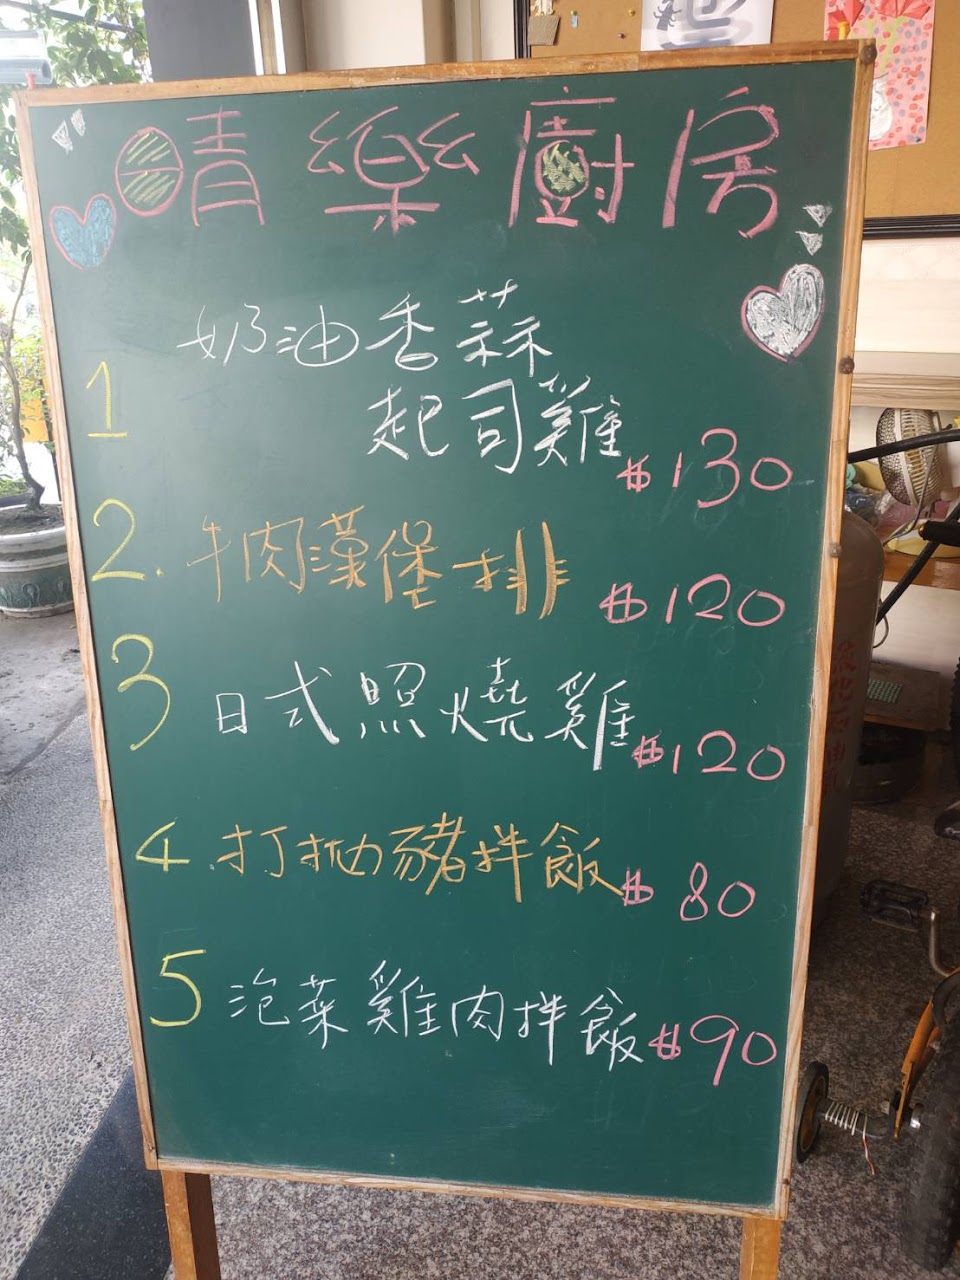 晴樂廚房
1 奶油香蒜
起司雞 $130
2. 牛肉漢堡排 $120
3 日式照燒雞 $120
4. 打拋豬拌飯 $80
5 泡菜雞肉拌飯 $90